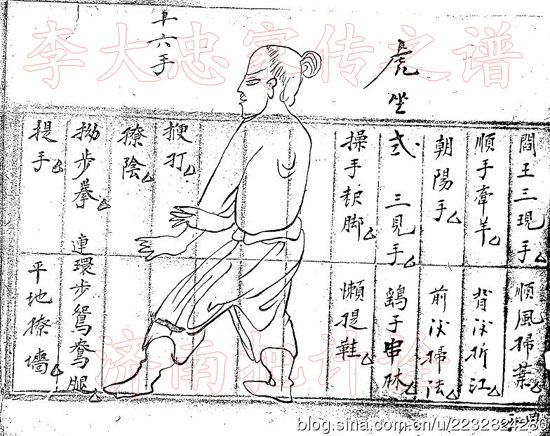 李大忠家传之谱
閻王三現手
順風掃葉
順手牽羊
朝陽手
掃法
虎坐
式
三見手
鷂子串林
操手 脚
懶提鞋
六手
打
撩陰
拗步拳
連環步鴛鴦腿
提手
平地撩墻
济南
blog.sina.com.cn/u/2232824280